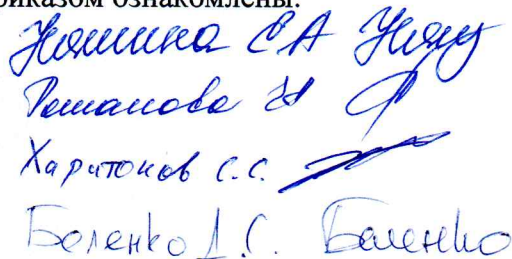 риказом ознакомлены.
С А
Романова
Харитонов С.С.
Беленко Д.С. Беленко